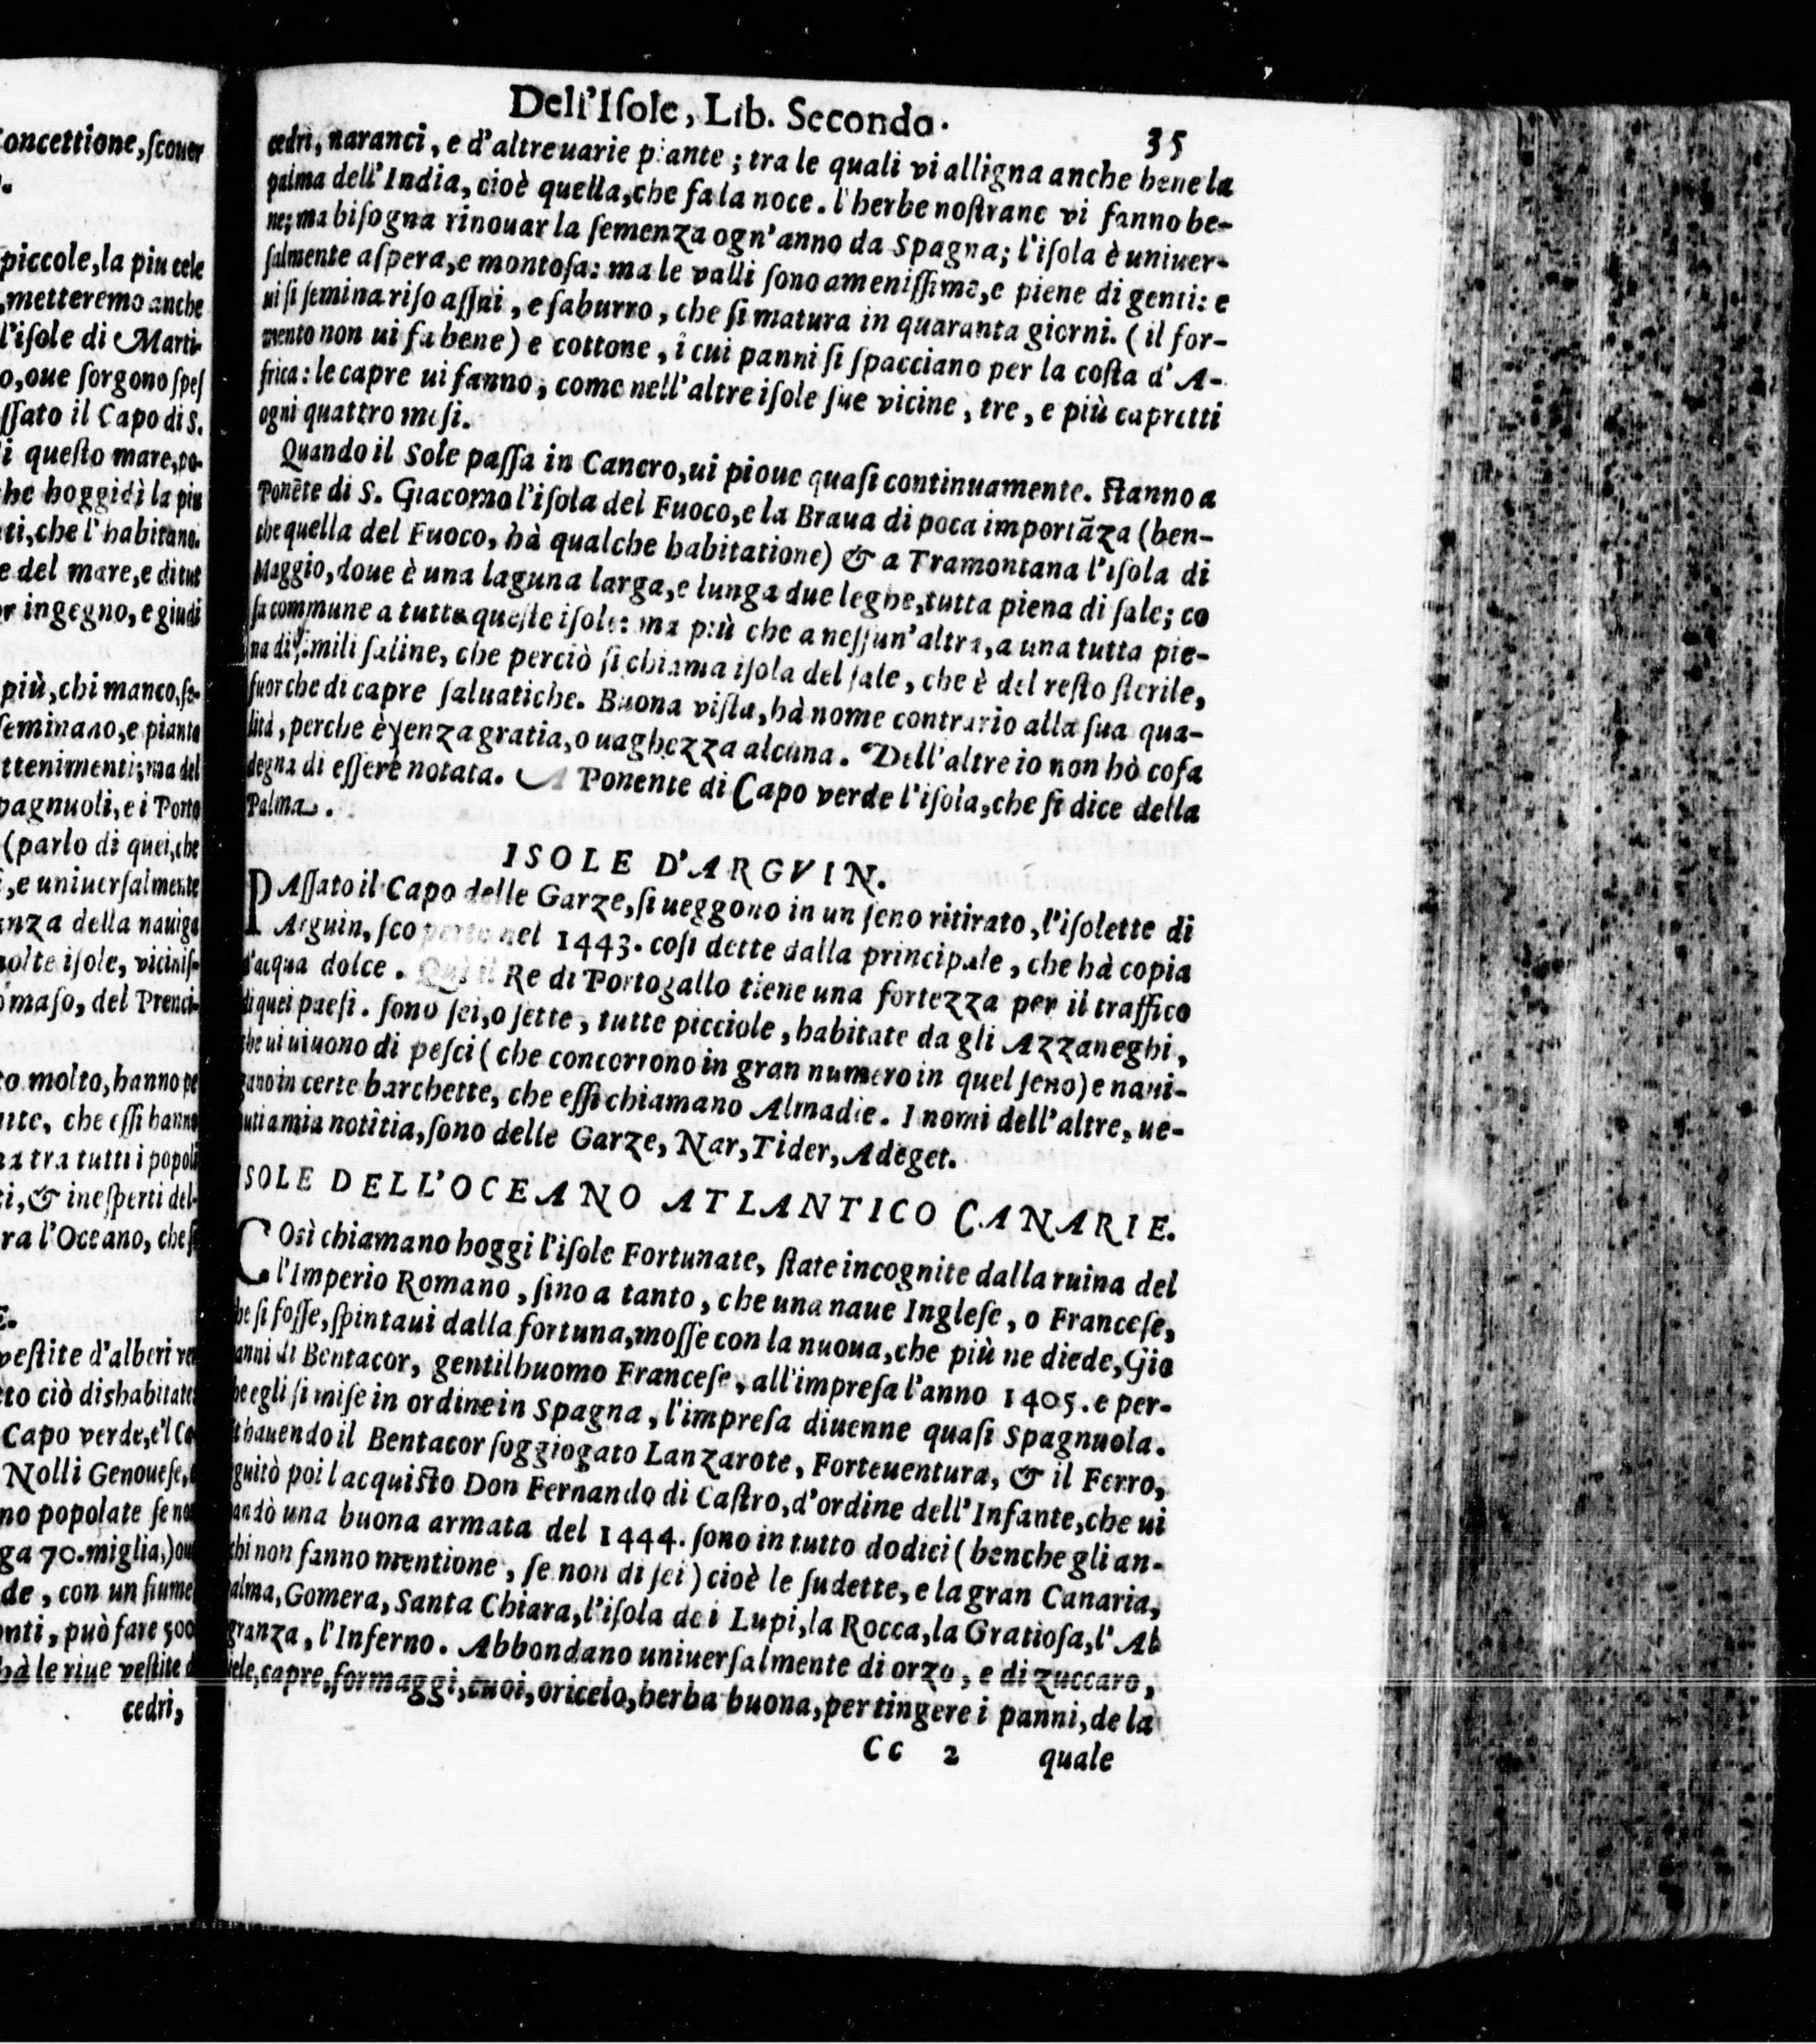 oncettione, ſcouer
piccole, la piu cele
, metteremo anche
l'iſole di Marti-
o, oue ſorgono ſpeſ
ſſato il Capo di S.
i queſto mare, po-
he hoggidì la piu
ti, che l'habitano.
e del mare, e di tut
or ingegno, e giudi
più, chi manco, ſe-
ſeminano, e pianta
ttenimenti; ma del
pagnuoli, e i Porto
(parlo di quei, che
, e uniuerſalmente
nza della nauiga
olte iſole, viciniſ-
omaſo, del Prenci-
to molto, hanno pe
nte, che eſſi hanno
na tra tutti i popoli
ti, & ineſperti del-
ra l'Oceano, che ſi
E.
veſtite d'alberi ver
to ciò dishabitate.
Capo verde, e'l Ca
Nolli Genoueſe,
no popolate ſe non
ga 70. miglia,) ou
de, con un fiume
onti, può fare 500
hà le riue veſtite d
cedri,
Dell'Iſole, Lib. Secondo. 35
cedri, naranci, e d'altre uarie piante; tra le quali vi alligna anche bene la
palma dell'India, cioè quella, che fa la noce. l'herbe noſtrane vi fanno be-
ne; ma biſogna rinouar la ſemenza ogn'anno da Spagna; l'iſola è uniuer-
ſalmente aſpera, e montoſa: ma le valli ſono ameniſſime, e piene di genti: e
ui ſi ſemina riſo aſſai, e ſaburro, che ſi matura in quaranta giorni. (il for-
mento non ui fa bene) e cottone, i cui panni ſi ſpacciano per la coſta d'A-
frica: le capre ui fanno, come nell'altre iſole ſue vicine, tre, e più capretti
ogni quattro meſi.
Quando il Sole paſſa in Cancro, ui pioue quaſi continuamente. ſtanno a
Ponēte di S. Giacomo l'iſola del Fuoco, e la Braua di poca importāza (ben-
che quella del Fuoco, hà qualche habitatione) & a Tramontana l'iſola di
Maggio, doue è una laguna larga, e lunga due leghe, tutta piena di ſale; co
ſa commune a tutte queſte iſole: ma più che a neſſun'altra, a una tutta pie-
na di ſimili ſaline, che perciò ſi chiama iſola del ſale, che è del reſto ſterile,
fuor che di capre ſaluatiche. Buona viſta, hà nome contrario alla ſua qua-
lità, perche è ſenza gratia, o uaghezza alcuna. Dell'altre io non hò coſa
degna di eſſere notata. A Ponente di Capo verde l'iſola, che ſi dice della
Palma.
ISOLE D'ARGVIN.
PAſſato il Capo delle Garze, ſi ueggono in un ſeno ritirato, l'iſolette di
Arguin, ſcoperte nel 1443. coſi dette dalla principale, che hà copia
d'acqua dolce. Quì il Re di Portogallo tiene una fortezza per il traffico
di quei paeſi. ſono ſei, o ſette, tutte picciole, habitate da gli Azzaneghi,
che ui uiuono di peſci (che concorrono in gran numero in quel ſeno) e naui-
gano in certe barchette, che eſſi chiamano Almadie. I nomi dell'altre, ue-
nuti a mia notitia, ſono delle Garze, Nar, Tider, Adeget.
ISOLE DELL'OCEANO ATLANTICO CANARIE.
COsì chiamano hoggi l'iſole Fortunate, ſtate incognite dalla ruina del
l'Imperio Romano, ſino a tanto, che una naue Ingleſe, o Franceſe,
che ſi foſſe, ſpintaui dalla fortuna, moſſe con la nuoua, che più ne diede, Gio
anni di Bentacor, gentilhuomo Franceſe, all'impreſa l'anno 1405. e per-
he egli ſi miſe in ordine in Spagna, l'impreſa diuenne quaſi Spagnuola.
hauendo il Bentacor ſoggiogato Lanzarote, Forteuentura, & il Ferro,
guitò poi l acquiſto Don Fernando di Caſtro, d'ordine dell'Infante, che ui
andò una buona armata del 1444. ſono in tutto dodici (benche gli an-
chi non fanno mentione, ſe non di ſei) cioè le ſudette, e la gran Canaria,
alma, Gomera, Santa Chiara, l'iſola de i Lupi, la Rocca, la Gratioſa, l'Al
granza, l'Inferno. Abbondano uniuerſalmente di orzo, e di zuccaro,
iele, capre, formaggi, cuoi, oricelo, herba buona, per tingere i panni, de la
Cc 2 quale